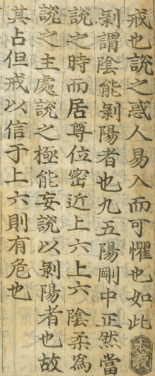 戒也說之惑人易入而可懼也如此
剝謂陰能剝陽者也九五陽剛中正然當
說之時而居尊位密近上六上六陰柔爲
說之主處說之極能妄說以剝陽者也故
其占但戒以信于上六則有危也